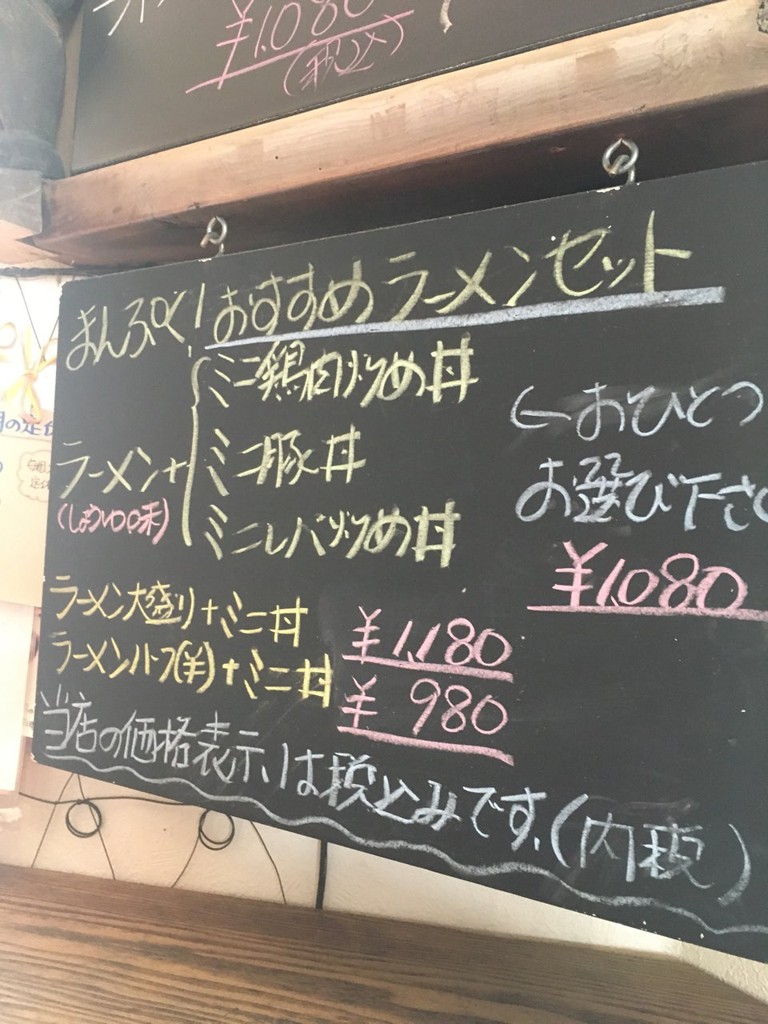 ¥1,080
(税込)
まんぷく!おすすめラーメンセット
ラーメン+
(しょうゆ味)
ミニ鶏肉炒め丼
ミニ豚丼
ミニレバ炒め丼
←おひとつ
お選び下さ
¥1,080
ラーメン大盛り+ミニ丼 ¥1,180
ラーメンハーフ(半)+ミニ丼 ¥980
当店の価格表示は税込みです。(内税)